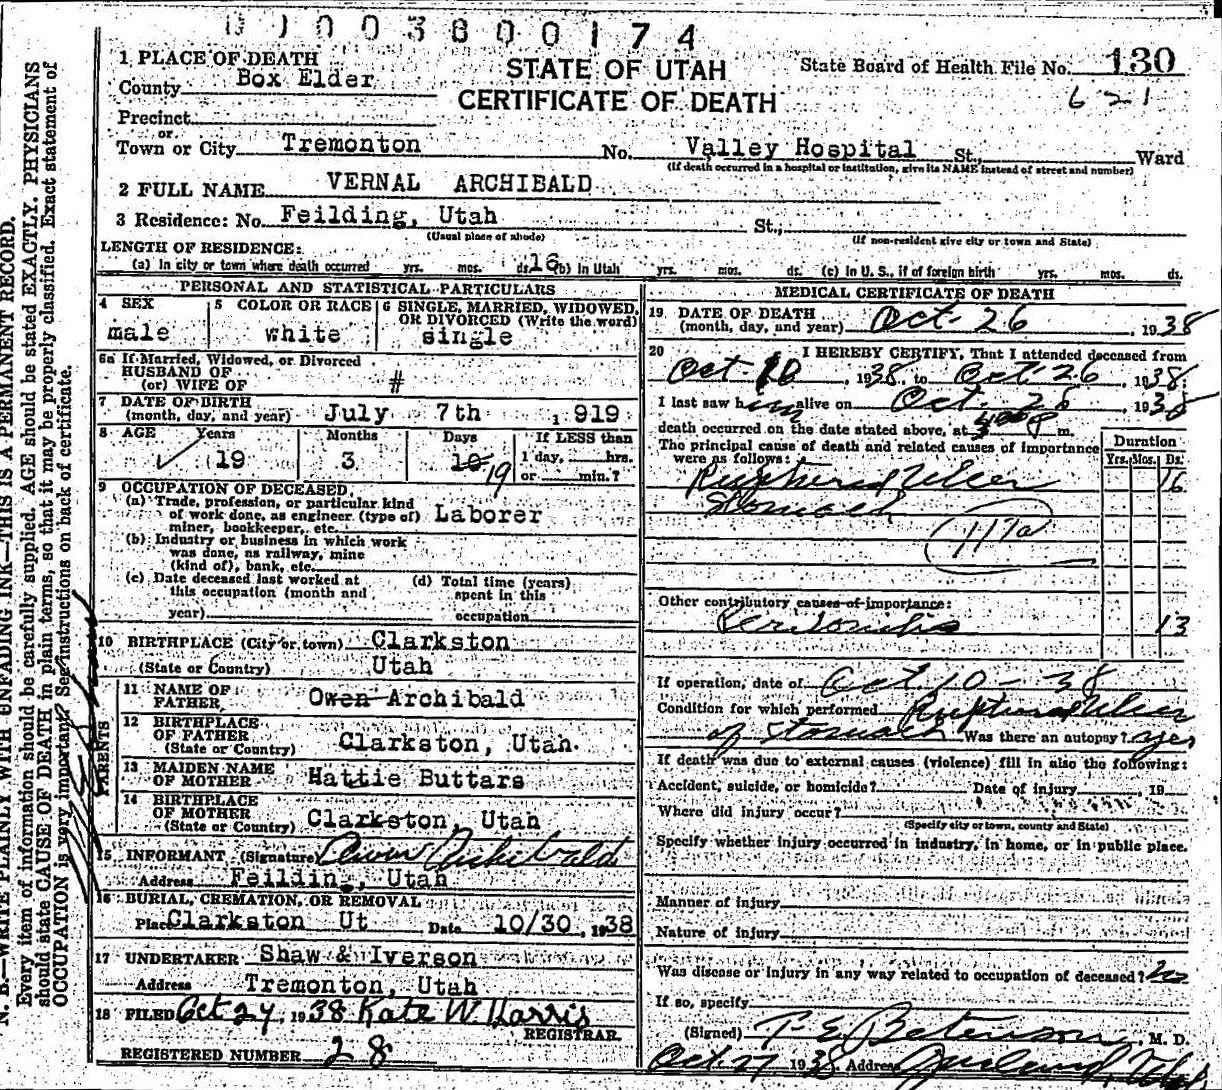 0 1 0 0 3 8 0 0 1 7 4
STATE OF UTAH
CERTIFICATE OF DEATH
State Board of Health File No. 130
621
1 PLACE OF DEATH
County Box Elder
Precinct
or
Town or City Tremonton No. Valley Hospital St., Ward
(If death occurred in a hospital or institution, give its NAME instead of street and number)
2 FULL NAME VERNAL ARCHIBALD
3 Residence: No. Feilding, Utah St.,
(Usual place of abode) (If non-resident give city or town and State)
LENGTH OF RESIDENCE:
(a) In city or town where death occurred yrs. mos. ds. 16 (b) In Utah yrs. mos. ds. (c) In U. S., if of foreign birth yrs. mos. ds.
PERSONAL AND STATISTICAL PARTICULARS
4 SEX male
5 COLOR OR RACE white
6 SINGLE, MARRIED, WIDOWED, OR DIVORCED (Write the word) single
6a If Married, Widowed, or Divorced
HUSBAND OF
(or) WIFE OF #
7 DATE OF BIRTH
(month, day, and year) July 7th, 1919
8 AGE Years Months Days If LESS than
19 3 19 1 day, hrs.
or min.?
9 OCCUPATION OF DECEASED
(a) Trade, profession, or particular kind
of work done, as engineer (type of) Laborer
miner, bookkeeper, etc.
(b) Industry or business in which work
was done, as railway, mine
(kind of), bank, etc.
(c) Date deceased last worked at
this occupation (month and
year)
(d) Total time (years)
spent in this
occupation
10 BIRTHPLACE (City or town) Clarkston
(State or Country) Utah
PARENTS
11 NAME OF
FATHER Owen Archibald
12 BIRTHPLACE
OF FATHER
(State or Country) Clarkston, Utah.
13 MAIDEN NAME
OF MOTHER Hattie Buttars
14 BIRTHPLACE
OF MOTHER
(State or Country) Clarkston, Utah
15 INFORMANT (Signature) Owen Archibald
Address Feilding, Utah
16 BURIAL, CREMATION, OR REMOVAL
Place Clarkston Ut Date 10/30, 1938
17 UNDERTAKER Shaw & Iverson
Address Tremonton, Utah
18 FILED Oct 27, 1938 Kate W. Harris
REGISTRAR
REGISTERED NUMBER 28
MEDICAL CERTIFICATE OF DEATH
19 DATE OF DEATH
(month, day, and year) Oct. 26, 1938
20 I HEREBY CERTIFY, That I attended deceased from
Oct. 10, 1938, to Oct 26, 1938.
I last saw him alive on Oct. 26 1938
death occurred on the date stated above, at m.
The principal cause of death and related causes of importance
were as follows:
Duration
Yrs. Mos. Ds.
Ruptured Ulcer 16
Stomach
117a
Other contributory causes of importance:
Peritonitis 13
If operation, date of Oct. 10 - 38
Condition for which performed Ruptured Ulcer
of Stomach Was there an autopsy? yes
If death was due to external causes (violence) fill in also the following:
Accident, suicide, or homicide? Date of injury , 19
Where did injury occur?
(Specify city or town, county and State)
Specify whether injury occurred in industry, in home, or in public place.
Manner of injury
Nature of injury
Was disease or injury in any way related to occupation of deceased? no
If so, specify
(Signed) , M. D.
Oct 27 1938 Address Garland Utah
N. B.—WRITE PLAINLY WITH UNFADING INK—THIS IS A PERMANENT RECORD.
Every item of information should be carefully supplied. AGE should be stated EXACTLY. PHYSICIANS
should state CAUSE OF DEATH in plain terms, so that it may be properly classified. Exact statement of
OCCUPATION is very important. See instructions on back of certificate.